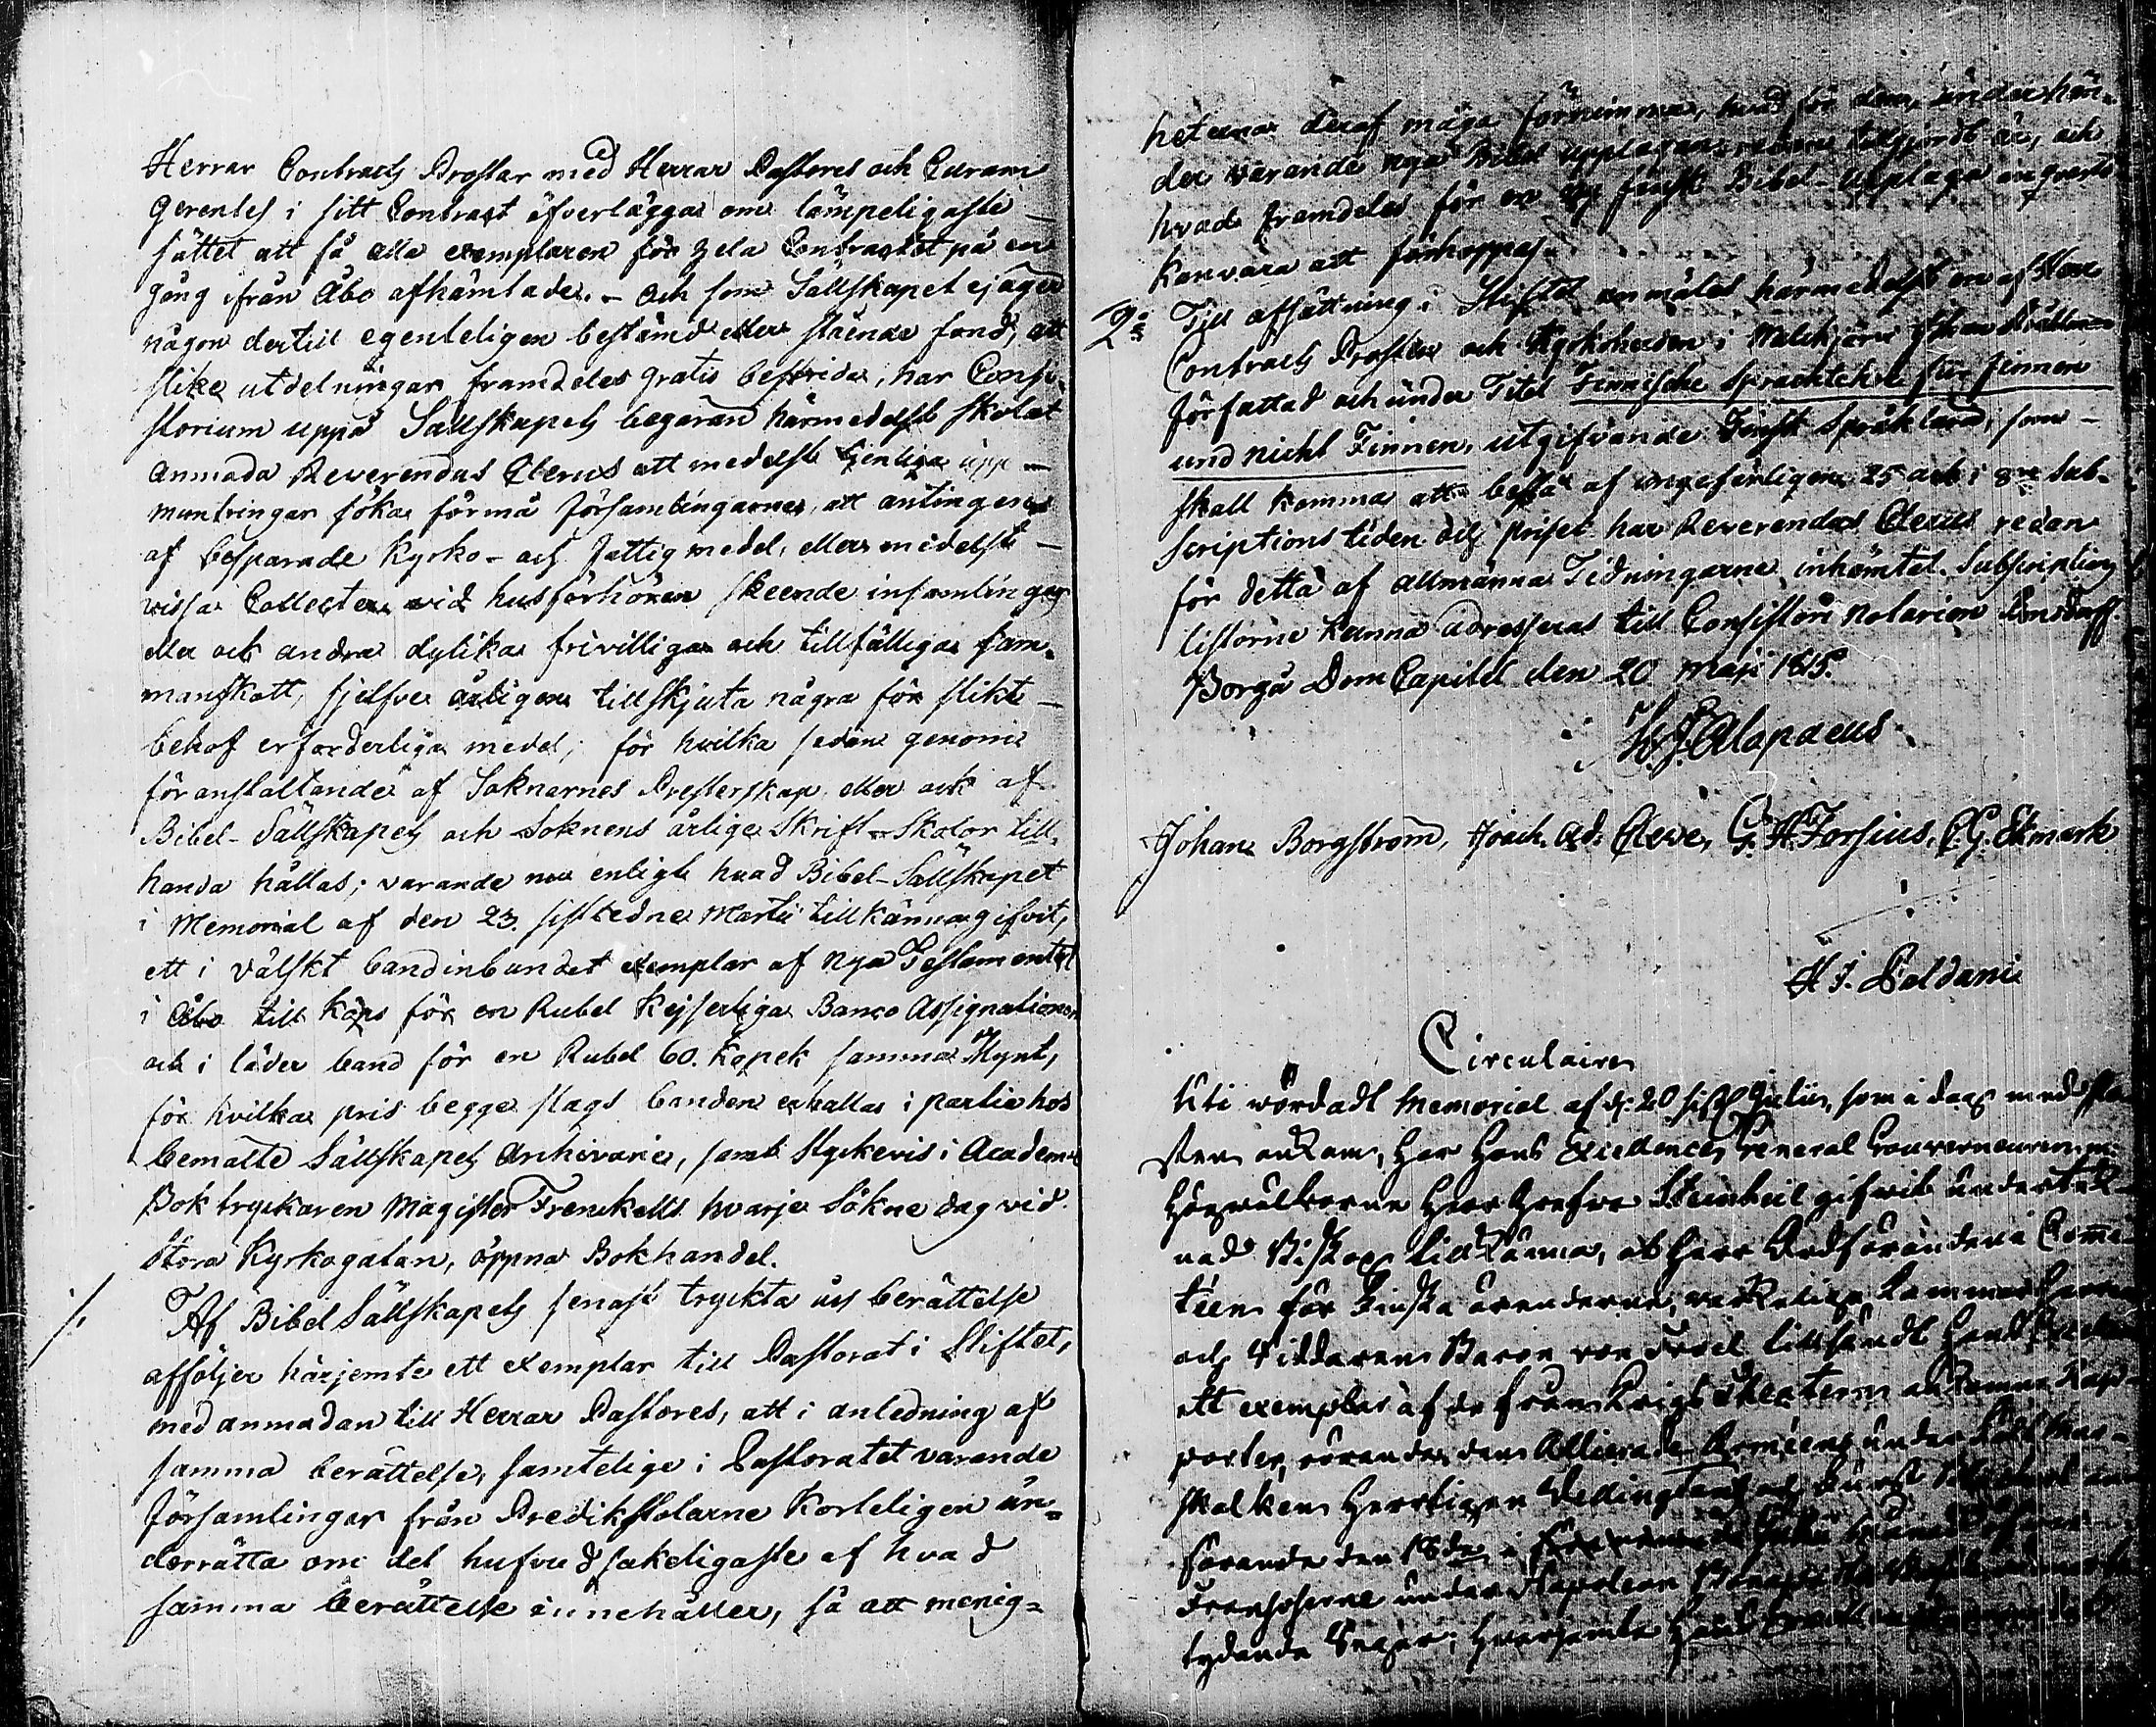 Herrar Contracts Prostar med Herrar Pastores och Curam
Gerentes i sitt Contract öfverlägga om lämpeligaste
sättet att få alla exemplaren för hela Contractet på en
gång ifrån Åbo afhämtade. - Och som Sällskapet ej äger
någon dertill egenteligen bestämd eller stående fond, att
slika utdelningar framdeles gratis bestrida, har Consi-
storium uppå Sällskapets begäran härmedelst skolat
anmoda Reverendus Clerus att medelst tjenliga upp-
muntringar söka förmå församlingarne, att antingen
af besparade Kyrko- och fattigmedel, eller medelst
vissa Collecter vid husförhören skeende insamlingar
eller ock andra dylika frivilliga och tillfälliga sam-
manskott, sjelfve årligen tillskjuta några för slikt
behof erforderliga medel; för hvilka sedan genom
föranstaltande af Soknarnes Presterskap eller ock af
Bibel-Sällskapets och Soknens årliga Skrift-Skolor till-
handa hållas; varande nu enligt hvad Bibel-Sällskapet
i Memorial af den 23. sistledne Martii tillkännagifvit,
ett i välskt band inbundet exemplar af Nya Testamentet
i Åbo till köps för en Rubel Kejserliga Banco Assignationer
och i läder band för en Rubel 60. Kopek samma Mynt,
för hvilka pris begge slags banden erhållas i partie hos
bemälte Sällskapets Archivarie, samt styckevis i Academie
Boktryckaren Magister Frenckells hvarje Söknedag vid
Stora Kyrkogatan, öppna Bokhandel.
Af Bibel Sällskapets senast tryckta års berättelse
afföljer härjemte ett exemplar till Pastorat i Stiftet,
med anmodan till Herrar Pastores, att i anledning af
samma berättelse, samtelige i Pastoratet varande
församlingar från Predikstolarne korteligen un-
derrätta om det hufvudsakeligaste af hvad
samma berättelse innehåller, så att menig-
heterna deraf måga förnimma, hvad för dem, under hän-
der varande nya Bibel upplagan redan tillgjordt är, och
hvad framdeles för en ny finsk Bibel-Upplaga in quarto
kan vara att förhoppas.
2:o Till afsättning i Stiftet anmäles härmedelst en af
Contracts Prosten och Kyrkoherden i Walkjärvi Johan Strahlman
författad och under Titel Finnische Sprachlehre für Finnen
und nicht Finnen, utgifvande Finsk Språklära, som
skall komma att bestå af ungefärligen 25 ark i 8:vo Sub-
scriptions tiden och priset har Reverendus Clerus redan
för detta af allmänna Tidningarne inhämtat. Subscriptions
listorne kunna adresseras till Consistorii Notarien
Borgå Dom Capitel den 20 Maji 1815.
Alopaeus
Johan Borgström, Joach. Ad. Cleve, G. H. Forsius, C. G. Ekmark
H. J. Paldani
Circulairen
Uti wördadt Memorial af d. 20 sistl. Julii, som i dag med
sten ankom, har Hans Excellence, General Gouverneuren
Högvälborne Herr Grefve Steinheil gifvit underteck-
nad Biskop tillkänna, at Herr Ordföranden i Comi-
teen för Finska ärenderne, werkelige Kammarherren
och Riddaren Baron von tillsändt Hans Excellence
ett exemplar af de från Krigs Theatern ankomne Rap-
porter, rörande den Allierade Arméens under Fält Mar-
skalken Hertigen Wellington och Furst
förande den 18de i
Fransoserne under Napoleon
tydande Seger; hvarjemte Hans